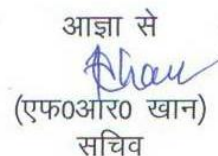 आज्ञा से
(एफ0आर0 खान)
सचिव